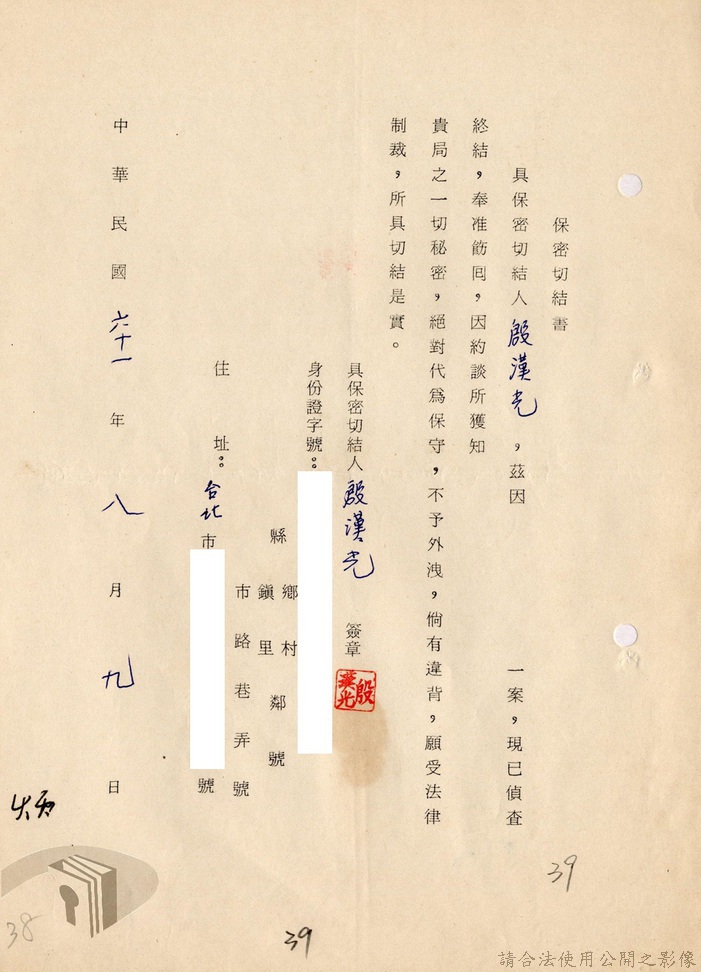 保密切結書
具保密切結人殷漢光,茲因　　　一案,現已偵查
終結,奉准飭回,因約談所獲知
貴局之一切秘密,絕對代為保守,不予外洩,倘有違背,願受法律
制裁,所具切結是實。
具保密切結人殷漢光　簽章
殷漢光
身份證字號:
縣　鄉鎮　村里　鄰　號
住址:台北市　市路巷弄號　號
中華民國六十一年八月九日
39
39
38
請合法使用公開之影像